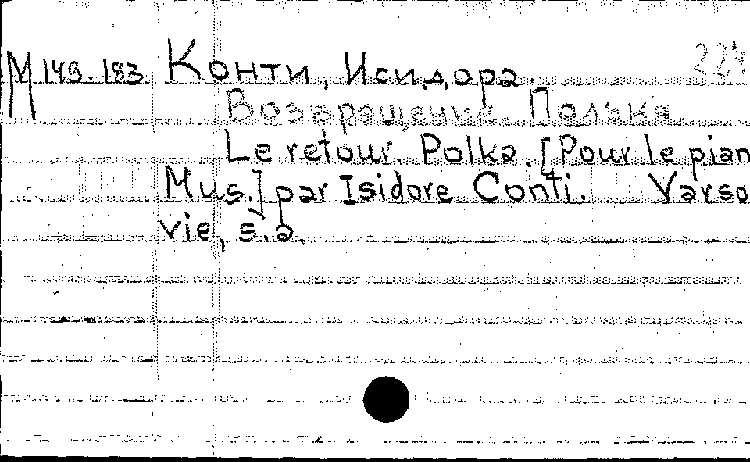 М 149-183. Конти, Исидора.
Возвращение. Полька
Le retour. Polka. [Pour le pian
Mus.] par Isidore Conti. Varso
vie, s.a.